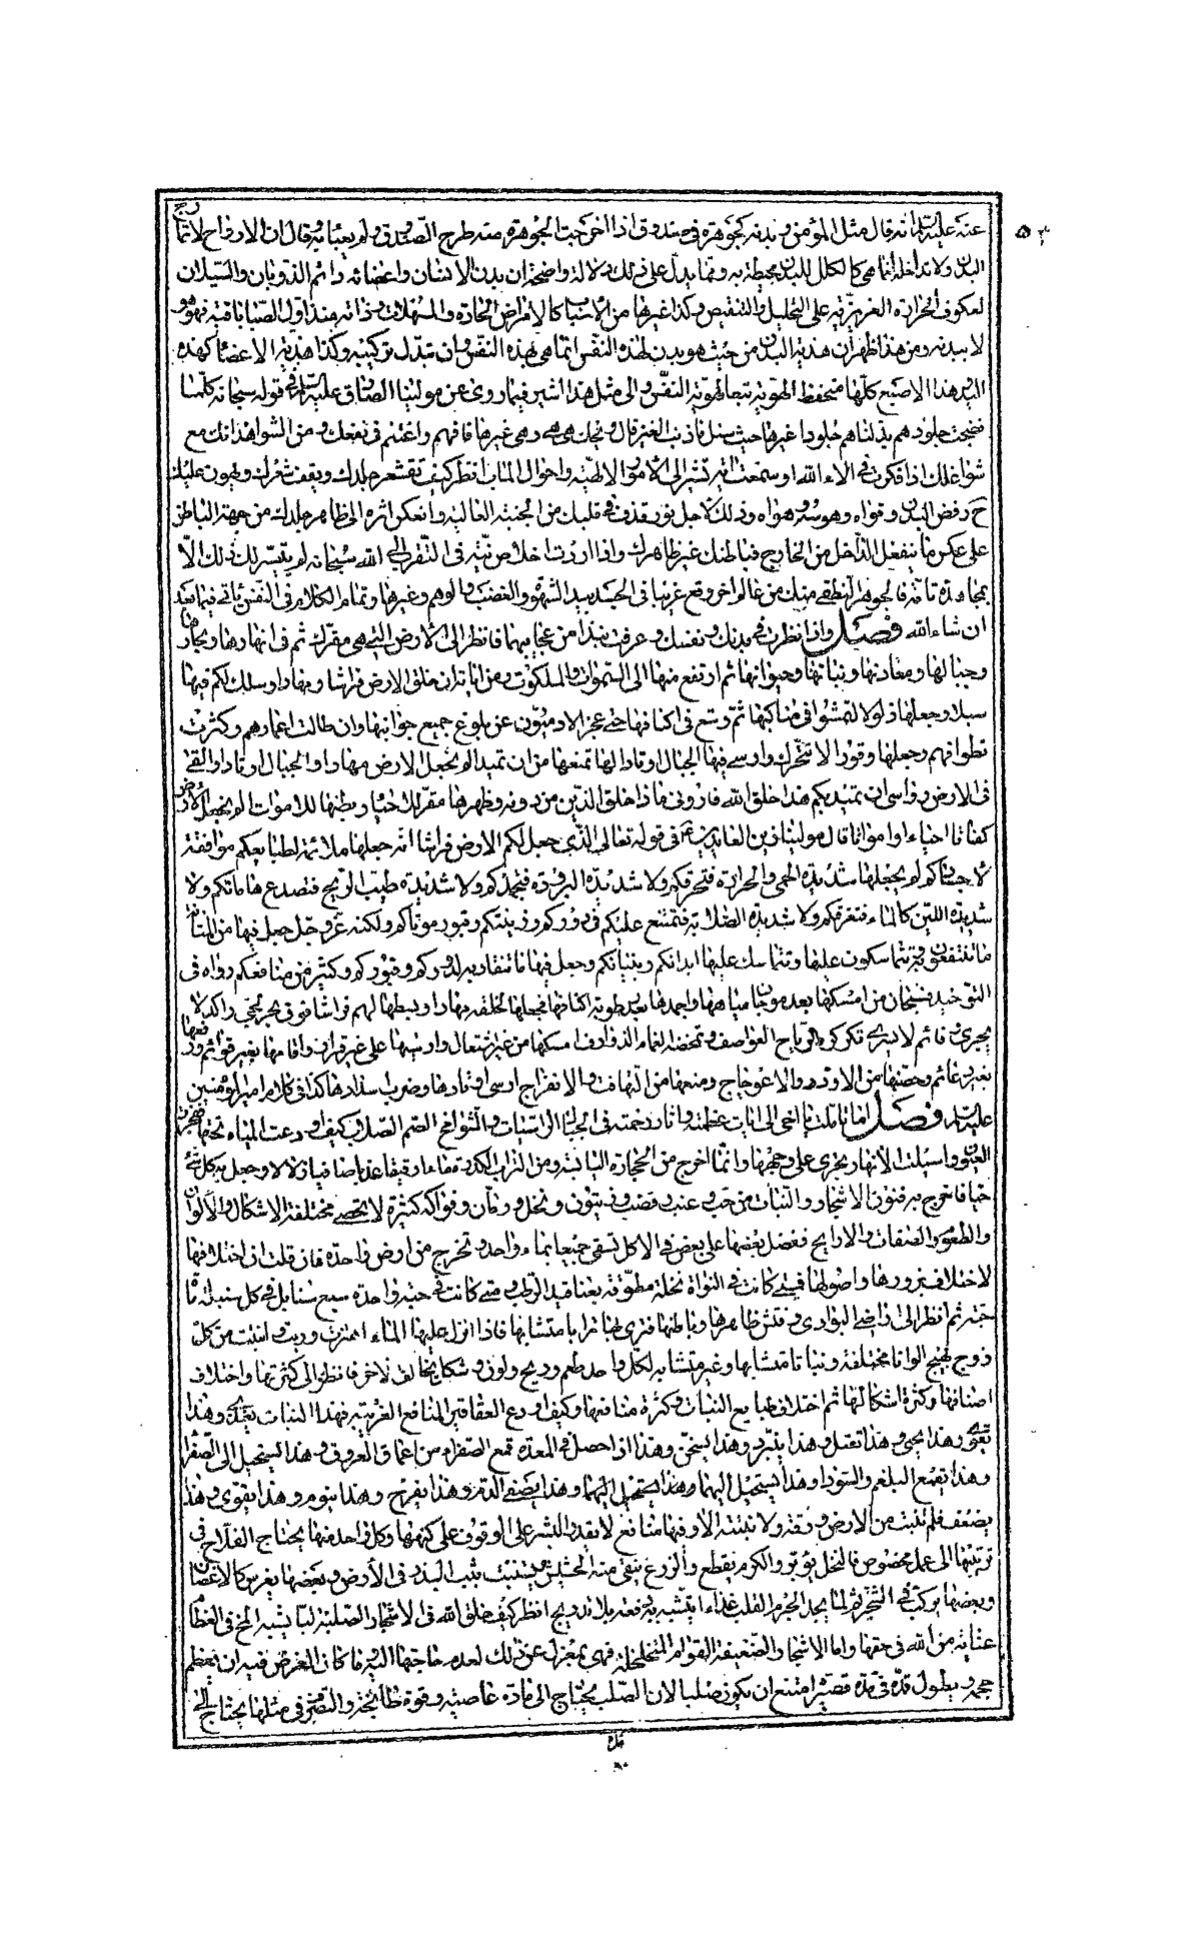 عنه عليه السلام انه قال مثل المؤمن وبدنه كجوهرة في صندوق اذا اخرجت الجوهرة منه طرح الصندوق ولم يعبأ به وقال ان الارواح لا تمازج
البدن ولا تداخله انما هي كالكلل للبدن محيطة به ومما يدل على ذلك دلالة واضحة ان بدن الانسان واعضائه دائم الذوبان والسيلان
لعكوف الحرارة الغريزية على التحليل والتنقيص وكذا غيرها من الاسباب كالامراض الحادة والمسهلات وذاته منذ اول الصبا باقية فهو هو
لا ببدنه ومن هذا ظهر ان هذية البدن من حيث هو بدن لهذه النفس انما هي بهذه النفس وان تبدل تركيبه وكذا هذية الاعضا كهذه
اليد هذا الاصبع كلها منحفظ الهوية تبعا لهوية النفس والى مثل هذا اشير فيما روي عن مولينا الصادق عليه السلام في قوله سبحانه كلما
نضجت جلودهم بدلناهم جلودا غيرها حيث سئل ما ذنب الغير قال ويحك هي هي وهي غيرها فافهم واغتنم في نفعك ومن الشواهد انك مع
شواغلك اذا فكرت في الاء الله او سمعت اية تشير الى الامور الالهية واحوال المآب انظر كيف تقشعر جلدك ويقف شعرك ويهون عليك
ح رفض البدن وقواه وهوسه وهواه وذلك لاجل نور قذف في قلبك من الجنبة العالية وانعكس اثره الى ظاهر جلدك من جهة الباطن
على عكس ما ينفعل الداخل من الخارج فباطنك غير ظاهرك واذا اردت اخلاص نية في التقرب الى الله سبحانه لم يتيسر لك ذلك الا
بمجاهدة تامة فالجوهر النطقي منك من عالم اخر وقع غريبا في الجسد بيد الشهوة والغضب والوهم وغيرها وتمام الكلام في النفس يأتي فيما بعد
ان شاء الله فصل واذا نظرت في بدنك ونفسك وعرفت نبذا من عجايبهما فانظر الى الارض التي هي مقرك ثم في انهارها وبحارها
وجبالها ومعادنها ونباتها وحيوانها ثم ارتفع منها الى السموات والملكوت ومن اياته ان خلق الارض فراشا ومهادا وسلك لكم فيها
سبلا وجعلها ذلولا لتمشوا في مناكبها ثم وسع في اكنافها حتى عجز الادميون عن بلوغ جميع جوانبها وان طالت اعمارهم وكثرت
تطوافهم وجعلها وقورا لا تتحرك وارسى فيها الجبال اوتادا لها تمنعها من ان تميد الم نجعل الارض مهادا والجبال اوتادا والقى
في الارض رواسي ان تميد بكم هذا خلق الله فاروني ماذا خلق الذين من دونه وظهرها مقر للاحياء وبطنها للاموات الم نجعل الارض
كفاتا احياء وامواتا قال مولينا زين العابدين ع في قوله تعالى الذي جعل لكم الارض فراشا انه جعلها ملائمة لطبايعكم موافقة
لاجسادكم لم يجعلها شديدة الحمى والحرارة فتحرقكم ولا شديدة البرودة فتجمدكم ولا شديدة طيب الريح فتصدع هاماتكم ولا
شديدة اللين كالماء فتغرقكم ولا شديدة الصلابة فتمتنع عليكم في دوركم وابنيتكم وقبور موتاكم ولكنه عز وجل جعل فيها من المتانة
ما تنتفعون به وتتماسكون عليها وتتماسك عليها ابدانكم وبنيانكم وجعل فيها ما تنقاد به لدوركم وقبوركم وكثير من منافعكم رواه في
التوحيد فسبحان من امسكها بعد موجان مياهها واجمدها بعد رطوبة اكنافها فجعلها لخلقه مهادا وبسطها لهم فراشا فوق بحر لجي راكد لا
يجري وقائم لا يسري تكركره الرياح العواصف وتمخضه الغمام الذوارف امسكها من غير اشتغال وارسيها على غير قرار واقامها بغير قوائم ورفعها
بغير دعائم وحصنها من الاود والاعوجاج ومنعها من التهافت والانفراج ارسى اوتادها وضرب سدادها كذا في كلام امير المؤمنين
عليه السلام فصل اما تاملت يا اخي الى ايات عظمته واثار رحمته في الجبال الراسيات والشوامخ الصم الصلاب كيف اودعت المياه تحتها ففجرت
العيون واسيلت الانهار يجري على وجهها وانما اخرج من الحجارة اليابسة ومن التراب الكدر ماء رقيقا عذبا صافيا زلالا وجعل به كل شيء
حيا فاخرج به فنون الاشجار والنبات من حب وعنب وقضب وزيتون ونخل ورمان وفواكه كثيرة لا تحصى مختلفة الاشكال والالوان
والطعوم والصفات والارايح فضل بعضها على بعض في الاكل تسقى جميعا بماء واحد وتخرج من ارض واحدة فان قلت ان اختلافها
لاختلاف بزورها واصولها فمتى كانت في النواة نخلة مطوقة بعناقيد الرطب ومتى كانت في حبة واحدة سبع سنابل في كل سنبلة مأة
حبة ثم انظر الى اراضي البوادي وفتش ظاهرها وباطنها فترى لها ترابا متشابها فاذا انزل عليها الماء اهتزت وربت انبتت من كل
زوج بهيج الوانا مختلفة ونباتا متشابها وغير متشابه لكل واحد طعم وريح ولون وشكل يخالف الاخر فانظر الى كثرتها واختلاف
اصنافها وكثرة اشكالها ثم اختلاف طبايع النبات وكثرة منافعها وكيف اودع العقاقير المنافع الغريبة فهذا النبات يغذي وهذا
يقوي وهذا يحيي وهذا يقتل وهذا يبرد وهذا يسخن وهذا اذا حصل في المعدة قمع الصفراء من اعماق العروق وهذا يستحيل الى الصفرا
وهذا يقمع البلغم والسودا وهذا يستحيل اليهما وهذا يستحيل اليهما وهذا يصفي الدم وهذا يفرح وهذا ينوم وهذا يقوي وهذا
يضعف فلم تنبت من الارض ورقة ولا تبنة الا وفيها منافع لا يقدر البشر على الوقوف على كنهها وكل واحد منها يحتاج الفلاح في
تربيتها الى عمل مخصوص فالنخل يؤبر والكرم يقطع والزرع ينقى منه الحشيش وبعضها يثبت ببث البذر في الارض وبعضها بغرس كالاغصان
وبعضها يركب في الشجر ثم لما يجد الجرم القلب غذاءا يتشبه به دفعة بلا تدريج انظر كيف خلق الله في الاشجار الصلبة لبا يشبه المخ في العظام
عناية من الله في حقها واما الاشجار الضعيفة القوام المتخلخلة فهي بمعزل عن ذلك لعدم حاجتها اليه وما كان الغرض فيه ان يعظم
حجمه ويطول قده في مدة قصيرة امتنع ان يكون صلبا لان الصلب يحتاج الى مادة عاصية وقوة طابخة والتصرف في مثلها يحتاج الى